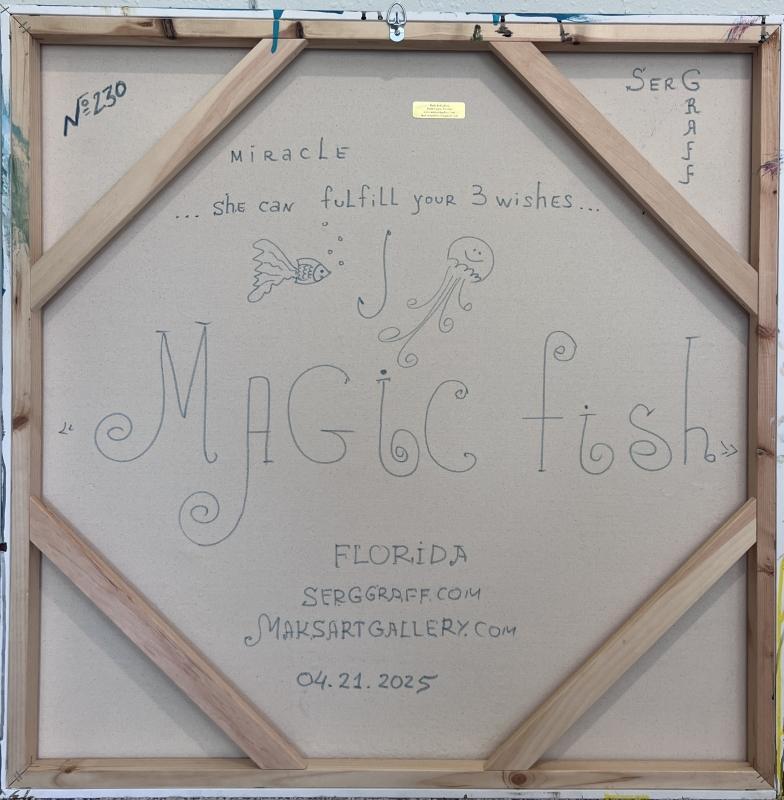 №230
SerGRAFF
MiRACLE
... she can fulfill your 3 wishes...
« MAGiC fish »
FLORiDA
SERGGRAFF.COM
MAKSARTGALLERY.COM
04.21.2025